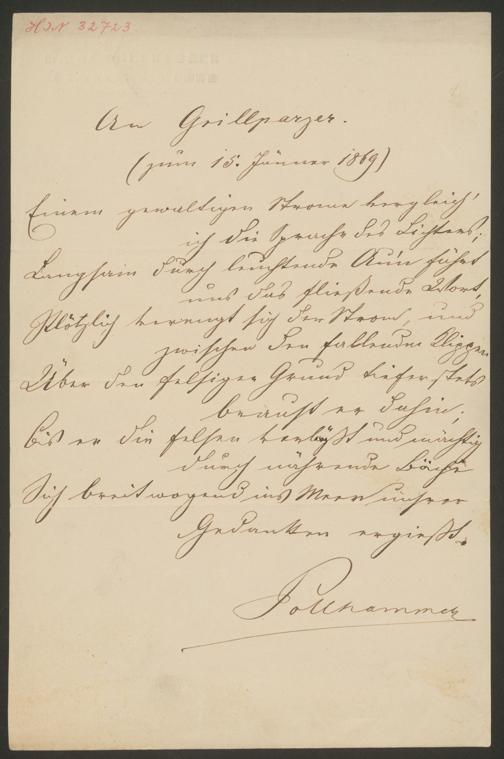 HIN 32723
An Grillparzer.
(zum 15. Jänner 1869)
Einem gewaltigen Strome vergleich'
ich die Sprache des Dichters;
Langsam durch leuchtende Au'n führt
uns das fließende Wort,
Plötzlich verengt sich der Strom, und
zwischen den fallenden Klippen
Über den felsigen Grund tiefer stets
braust er dahin;
Bis er die Felsen verläßt und mächtig
durch nährende Bäche
Sich breitwogend ins Meer unsrer
Gedanken ergießt.
Pollhammer